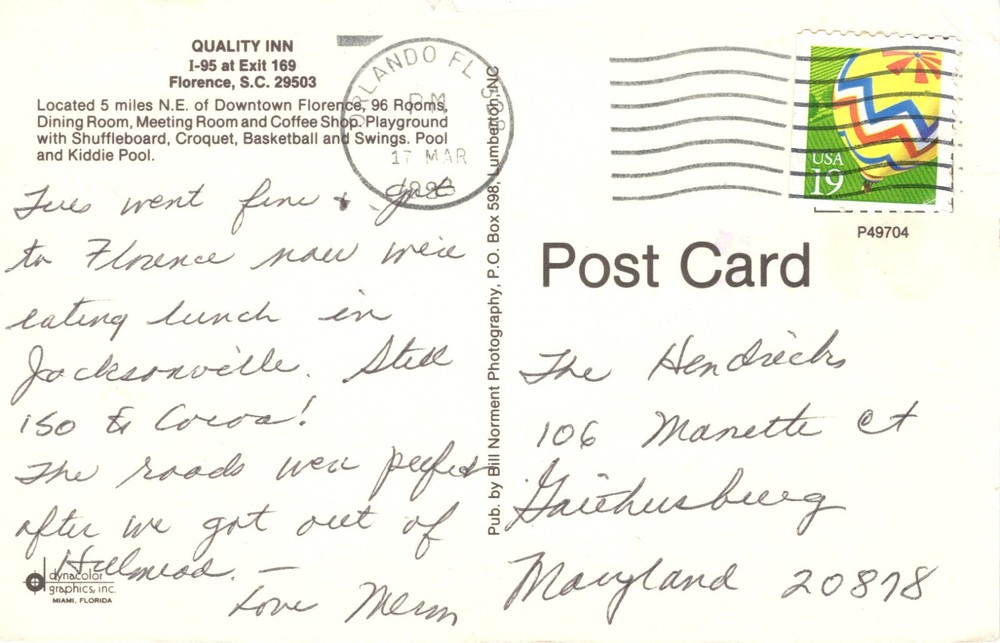 QUALITY INN
I-95 at Exit 169
Florence, S.C. 29503
Located 5 miles N.E. of Downtown Florence, 96 Rooms,
Dining Room, Meeting Room and Coffee Shop. Playground
with Shuffleboard, Croquet, Basketball and Swings. Pool
and Kiddie Pool.
Tues went fine & got
to Florence now we're
eating lunch in
Jacksonville. Still
150 to Cocoa!
The roads were perfect
after we got out of
Love Mem
dynacolor
graphics, inc.
MIAMI, FLORIDA
Pub. by Bill Norment Photography, P.O. Box 598, Lumberton, NC
ORLANDO FL
PM
17 MAR
USA
19
P49704
Post Card
The Hendricks
106 Manette Ct
Gaithersburg
Maryland 20878